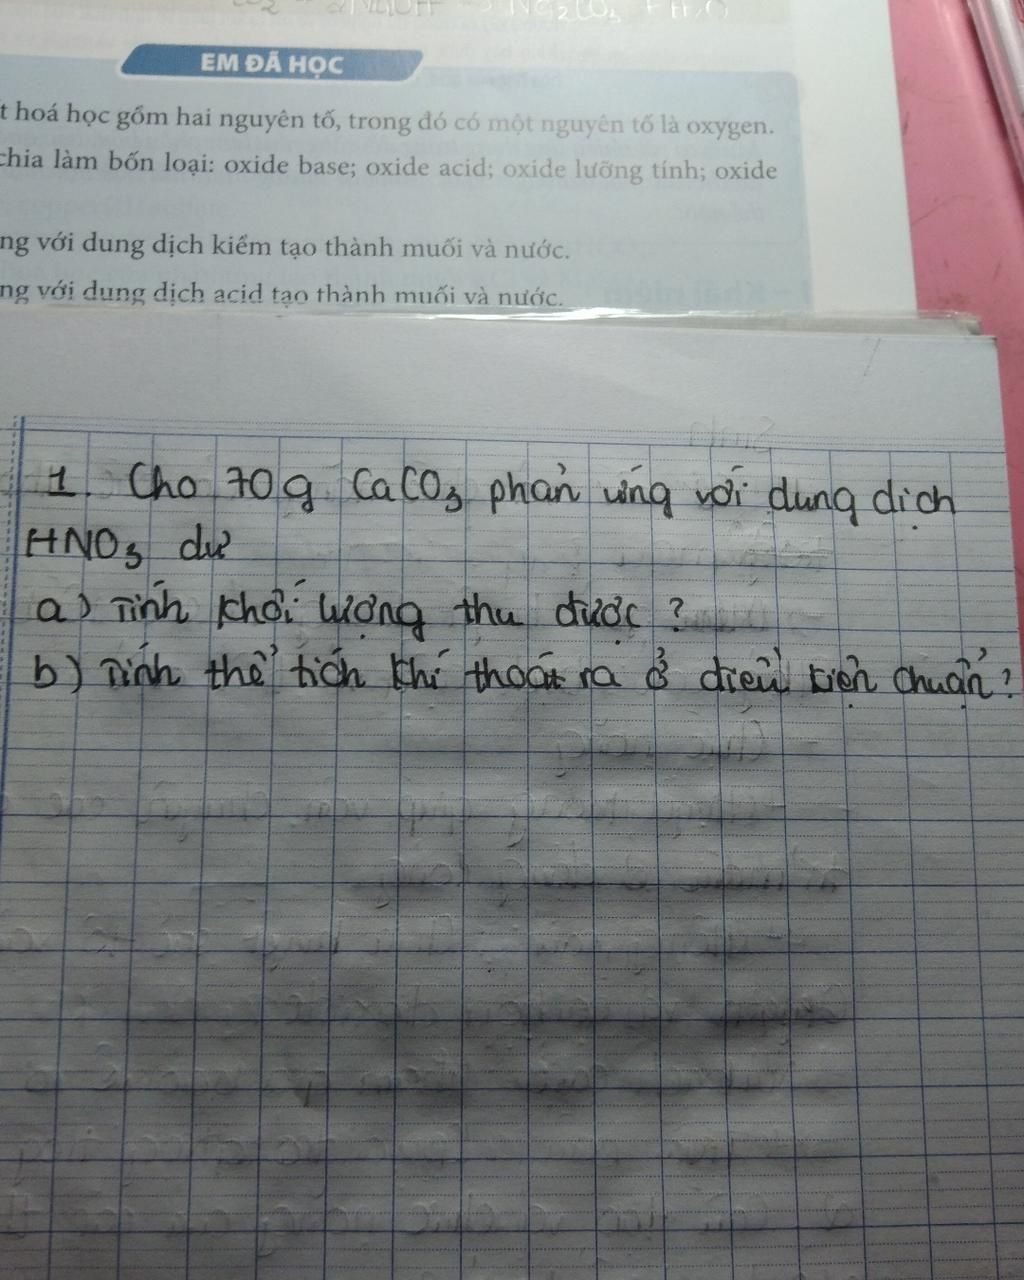 2NaOH → Na2CO3 + H2O
EM ĐÃ HỌC
t hoá học gồm hai nguyên tố, trong đó có một nguyên tố là oxygen.
chia làm bốn loại: oxide base; oxide acid; oxide lưỡng tính; oxide
ng với dung dịch kiềm tạo thành muối và nước.
ng với dung dịch acid tạo thành muối và nước.
1. Cho 70g CaCO3 phản ứng với dung dịch
HNO3 dư
a) Tính khối lượng thu được ?
b) Tính thể tích khí thoát ra ở điều kiện chuẩn ?